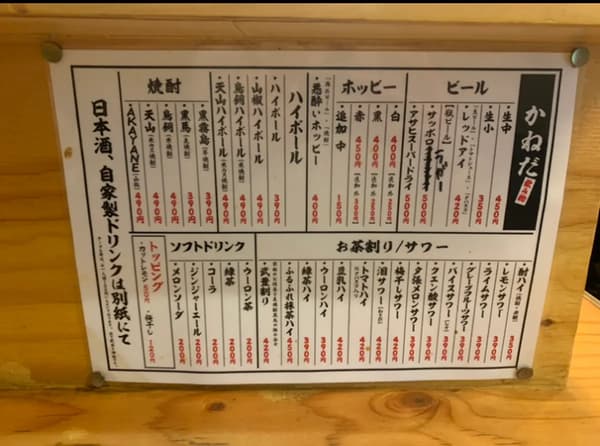 かねだ
ビール
・生中 450円
・生小 350円
・レッドアイ 420円
【瓶ビール】
・サッポロ 500円
・アサヒスーパードライ 500円
ホッピー
・白 400円
・黒 400円
・赤 450円
・追加 中 150円
・悪酔いホッピー 400円
ハイボール
・ハイボール 390円
・山椒ハイボール 490円
・鳥飼ハイボール 490円
・天山ハイボール 490円
焼酎
・黒霧島 390円
・黒馬 390円
・鳥飼 490円
・天山 490円
・AKAYANE 490円
お茶割り/サワー
・酎ハイ 350円
・レモンサワー 390円
・ライムサワー 390円
・グレープフルーツサワー 390円
・バイスサワー 390円
・クエン酸サワー 390円
・夕張メロンサワー 390円
・梅干しサワー 420円
・泪サワー 420円
・トマトハイ 420円
・豆乳ハイ 420円
・ウーロンハイ 390円
・緑茶ハイ 390円
・ふるふれ抹茶ハイ 450円
・武重割り 420円
ソフトドリンク
・ウーロン茶 200円
・緑茶 200円
・コーラ 200円
・ジンジャーエール 200円
・メロンソーダ 200円
トッピング
・カットレモン
・梅干し 120円
日本酒、自家製ドリンクは別紙にて